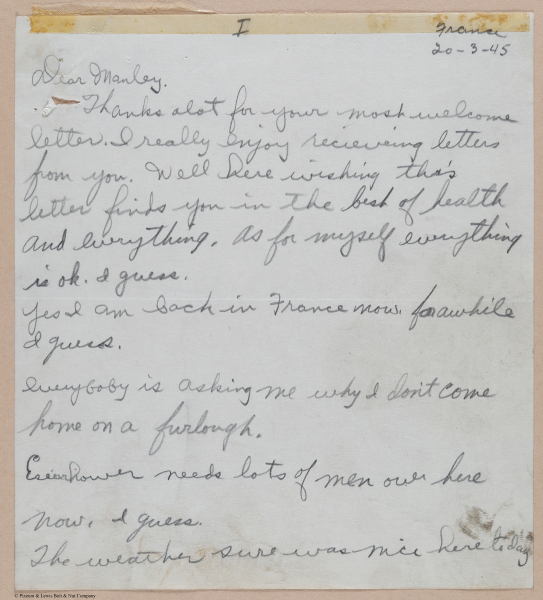 I
France
20-3-45
Dear Manley.
Thanks alot for your most welcome
letter. I really enjoy recieveing letters
from you. Well here wishing this
letter finds you in the best of health
and everything. As for myself everything
is ok. I guess.
Yes I am back in France now. for awhile
I guess.
everyboby is asking me why I don't come
home on a furlough.
Eisenhower needs lots of men over here
now. I guess.
The weather sure was nice here today
© Plumm & Lewis Bolt & Nut Company